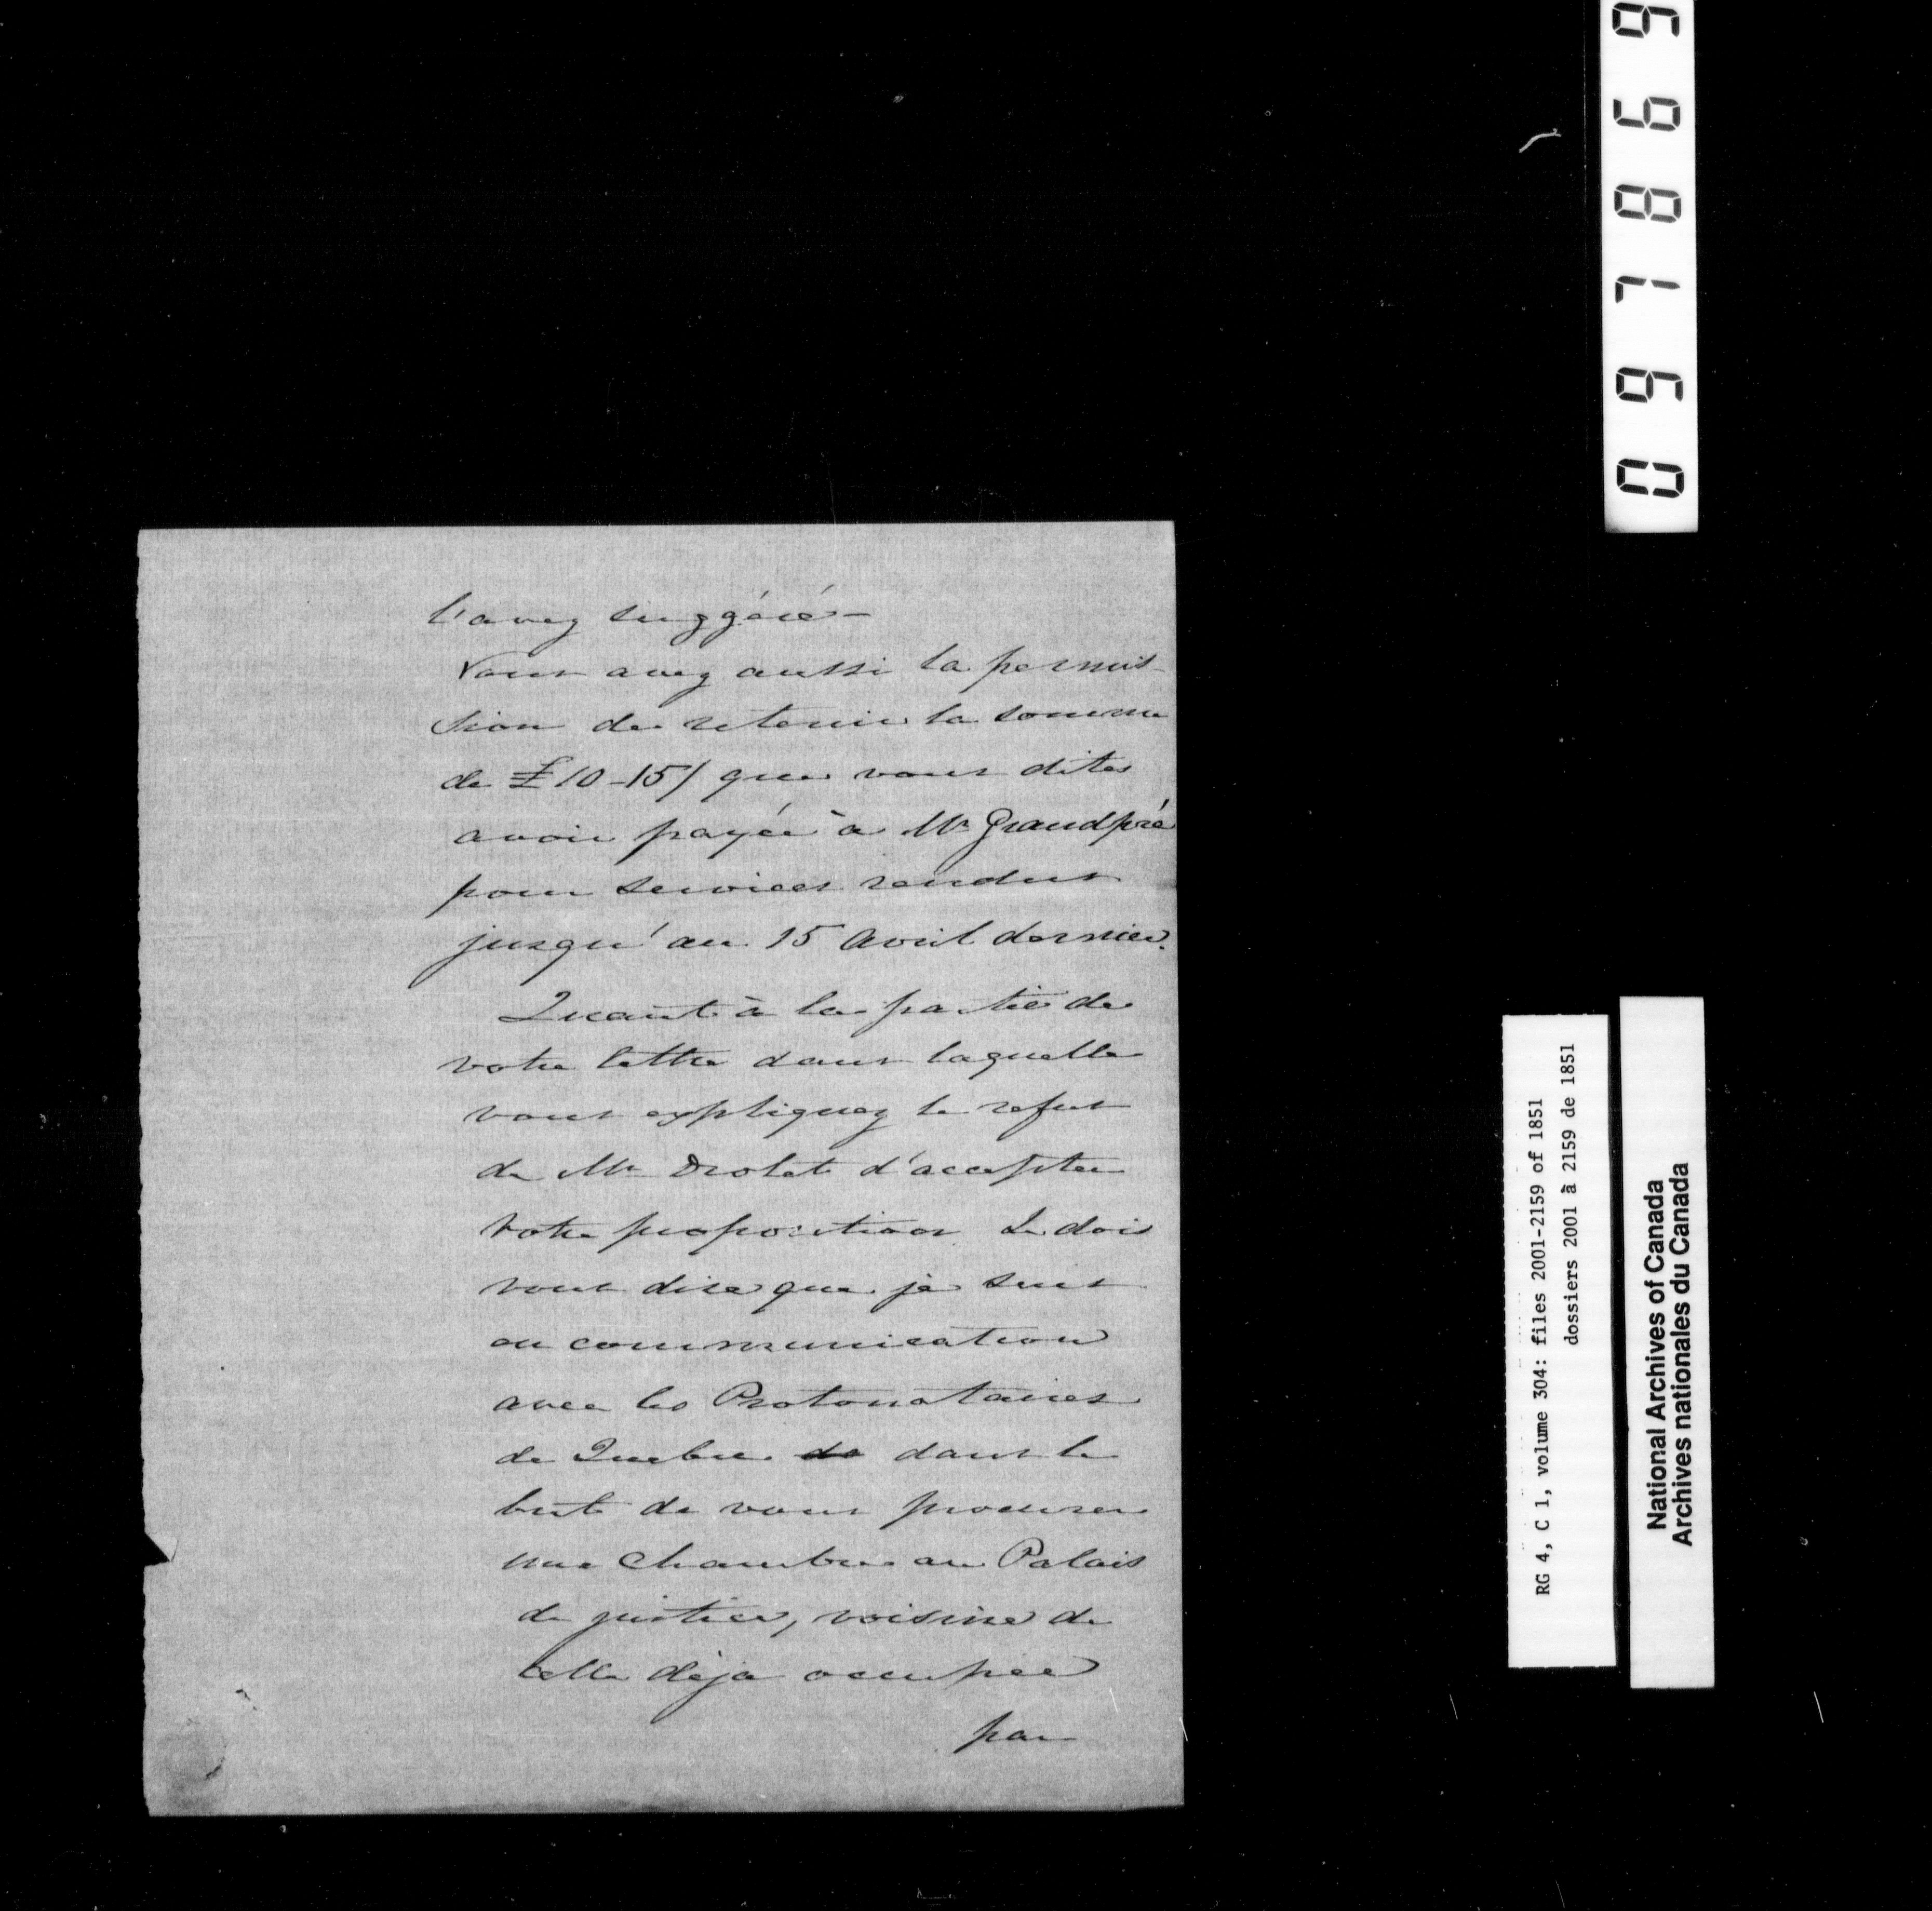 l'avez suggéré –
Vous avez aussi la permis-
sion de retenir la somme
de £10-15/ que vous dites
avoir payée à Mr Grandpré
pour services rendus
jusqu'au 15 Avril dernier.
Quant à la partie de
votre lettre dans laquelle
vous expliquez le refus
de Mr Drolet d'accepter
votre proposition Je dois
vous dire que je suis
en communication
avec les Protonotaires
de Quebec de dans le
but de vous procurer
une Chambre au Palais
de justice, voisine de
celle déja occupée
par
097869
RG 4, C 1, volume 304: files 2001-2159 of 1851
dossiers 2001 à 2159 de 1851
National Archives of Canada
Archives nationales du Canada